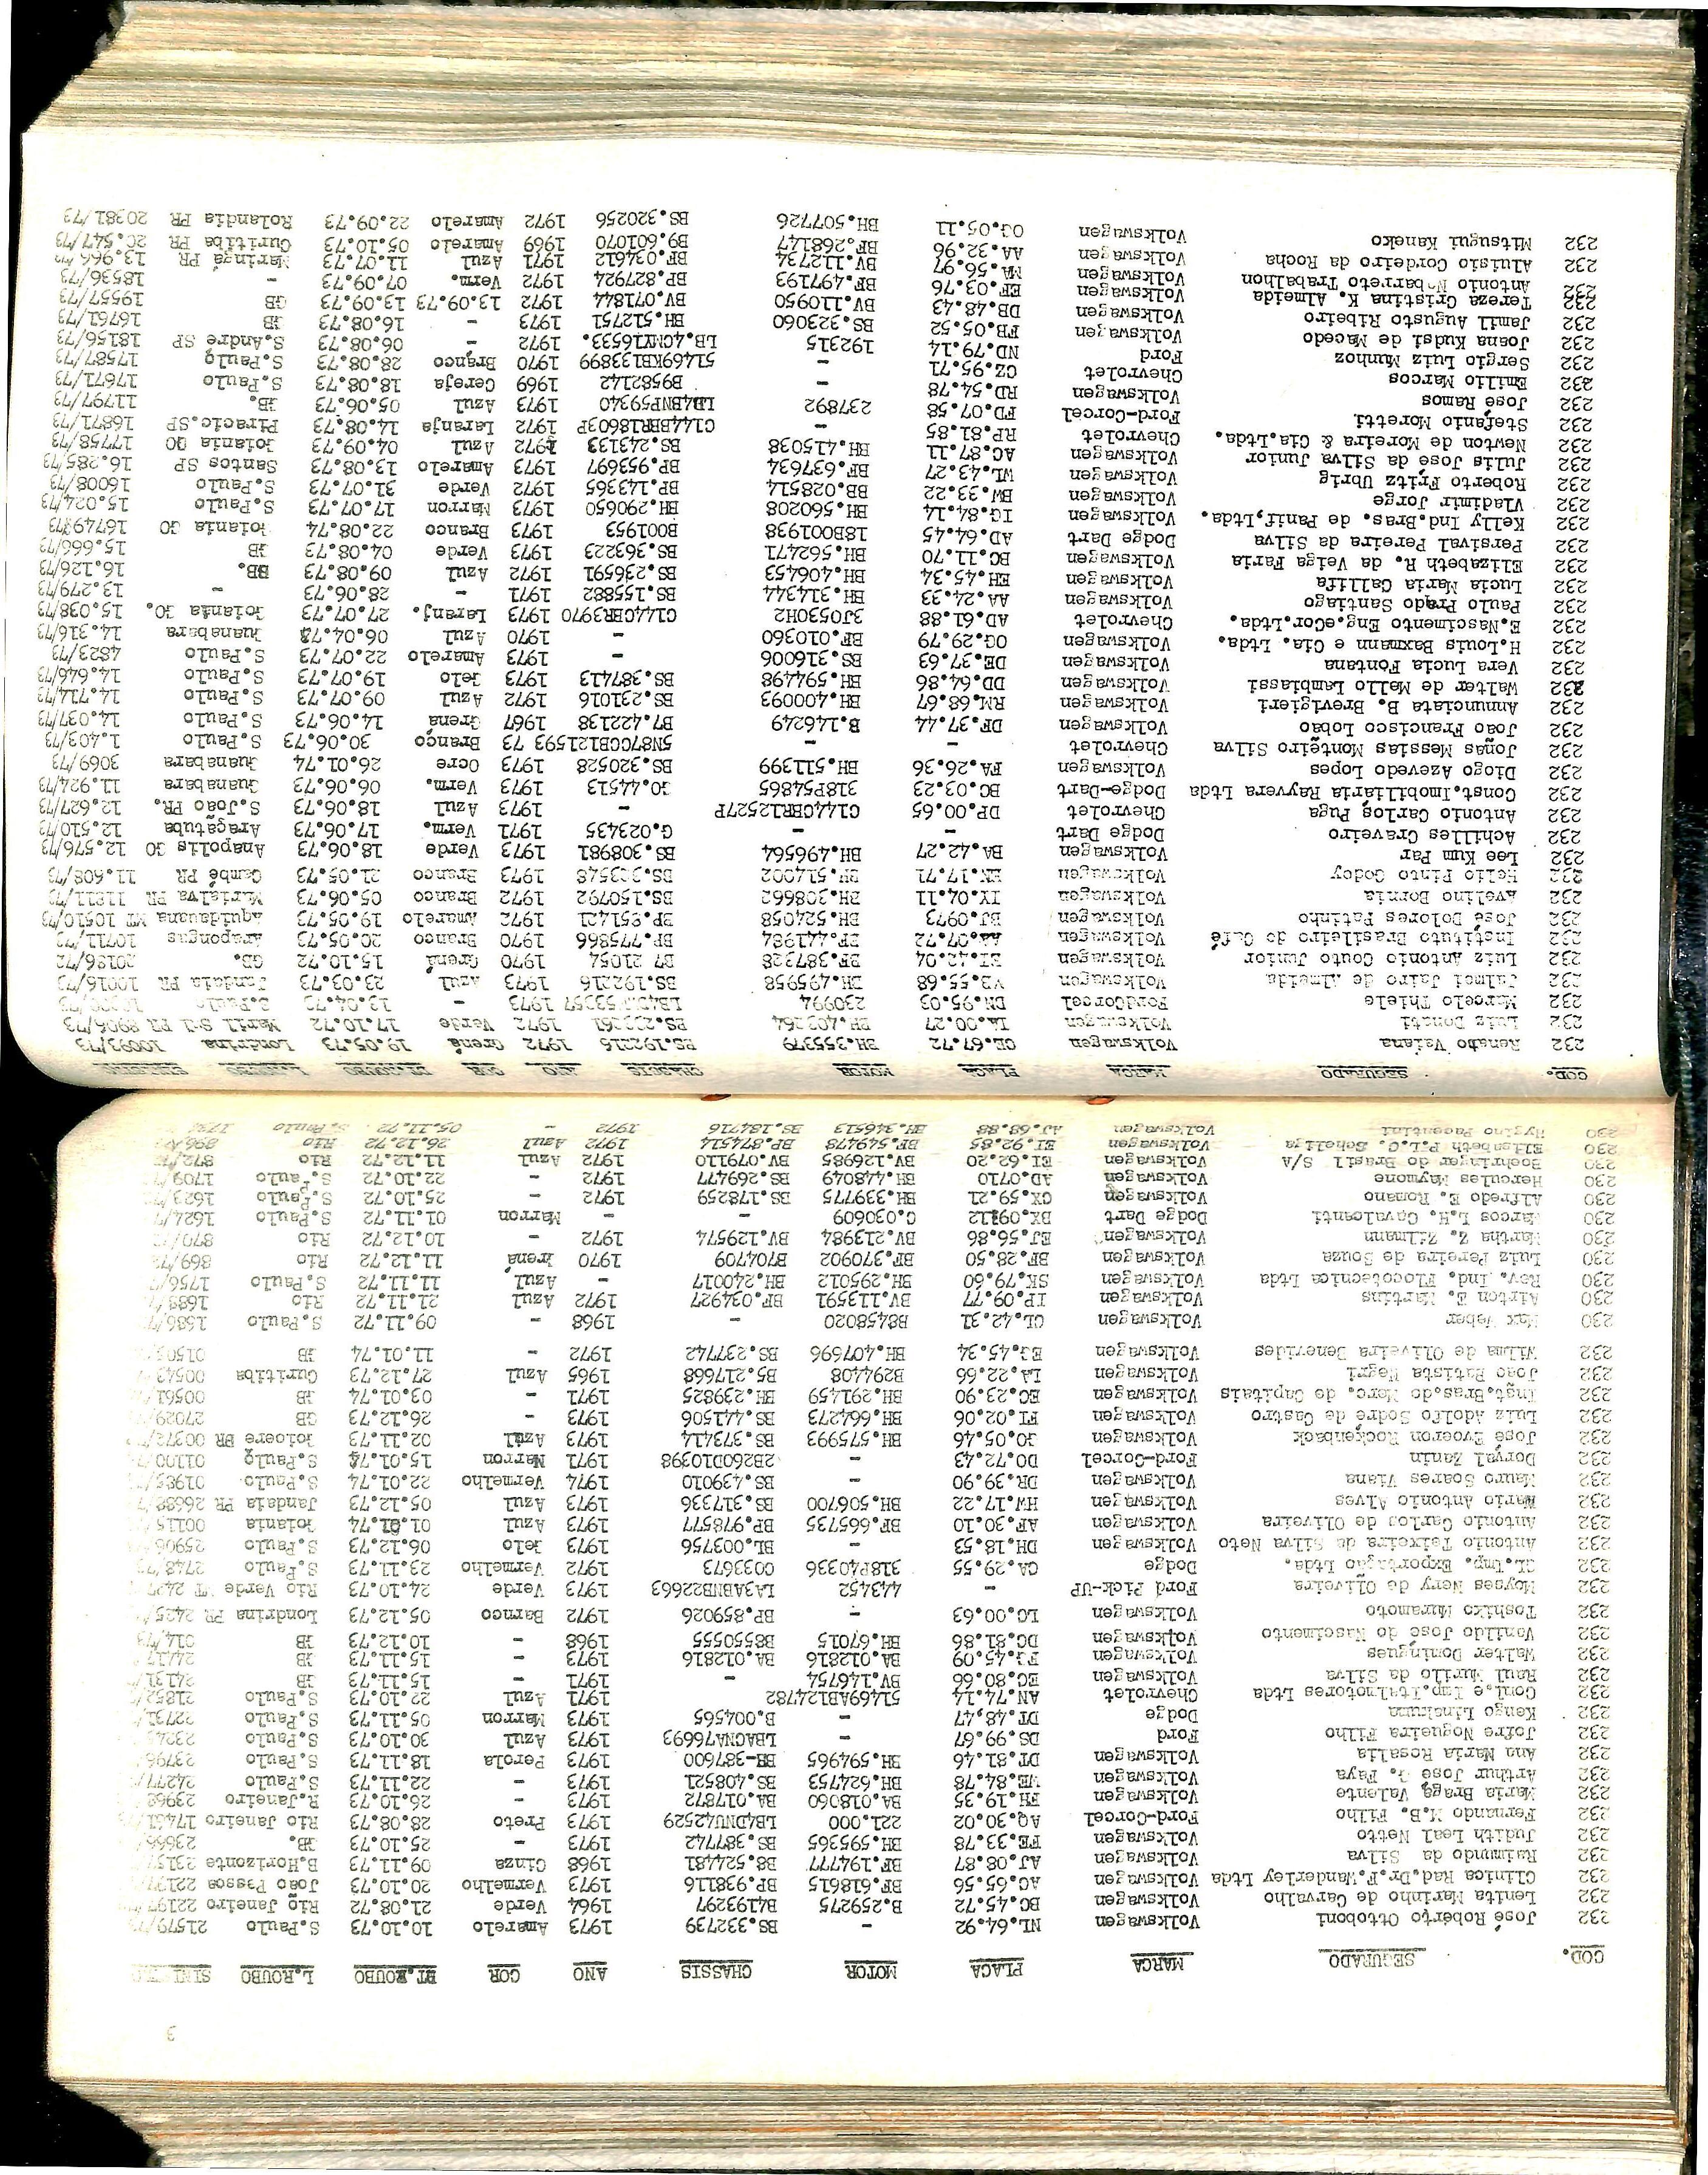 3
COD. SEGURADO MARCA PLACA MOTOR CHASSIS ANO COR DT.ROUBO L.ROUBO
232 José Roberto Ottoboni Volkswagen NL.64.92 - BS.332739 1973 Amarelo 10.10.73 S.Paulo 21579/73
232 Lenita Marinho de Carvalho Volkswagen BC.45.72 B.259275 B4193297 1964 Verde 21.08.72 Rio Janeiro 22197
232 Clinica Rad.Dr.P.Wanderley Ltda Volkswagen AC.65.56 BF.618615 BP.938116 1973 Vermelho 20.10.73 João Pessoa
232 Raimundo da Silva Volkswagen AJ.08.87 BF.194777 B8.524481 1968 Cinza 09.11.73 B.Horizonte
232 Judith Leal Netto Volkswagen FE.33.78 BH.595365 BS.387742 1973 - 25.10.73 GB. 23666
232 Fernando M.B. Filho Ford-Corcel AQ.30.02 221.000 LB4DNU42529 1973 Preto 28.08.73 Rio Janeiro
232 Maria Braga Valente Volkswagen FH.19.35 BA.018060 BA.017872 1973 - 26.10.73 R.Janeiro 23968
232 Arthur Jose G. Faya Volkswagen WE.84.78 BH.624753 BS.408521 1973 - 22.11.73 S.Paulo 24277
232 Ana Maria Rosalia Volkswagen DT.81.46 BH.594965 BH-387600 1973 Perola 18.11.73 S.Paulo 23796
232 Jofre Nogueira Filho Ford DS.99.67 - LBAGNA76693 1973 Azul 30.10.73 S.Paulo
232 Kengo Linskura Dodge DT.48.47 - B.004565 1973 Marron 05.11.73 S.Paulo
232 Coml.e Imp.Italmotores Ltda Chevrolet AN.74.14 51469AB124782 1971 Azul 22.10.73 S.Paulo 21852
232 Raul Murillo da Silva Volkswagen EG.80.66 BV.146754 - 1971 - 15.11.73 GB 24131
232 Walter Domingues Volkswagen FJ.45.09 BA.012816 BA.012816 1973 - 15.11.73 GB
232 Vanildo José do Nascimento Volkswagen DC.81.86 BH.67015 B8550555 1968 - 10.12.73 GB
232 Toshiko Muramoto Volkswagen LG.00.63 - BP.859026 1972 Barnco 05.12.73 Londrina PR
232 Moyses Nery de Oliveira Ford Pick-UP - 443452 LA3ABNB22663 1973 Verde 24.10.73 Rio Verde MT
232 CL.Imp. Exportação Ltda. Dodge CA.29.55 318P40336 C033673 1972 Vermelho 23.11.73 S.Paulo
232 Antonio Teixeira da Silva Neto Volkswagen DH.18.53 - BL.003756 1973 Gelo 06.12.73 S.Paulo
232 Antonio Carlos de Oliveira Volkswagen AF.30.10 BF.665735 BP.978577 1973 Azul 01.01.74 Goiania 00115
232 Mario Antonio Alves Volkswagen HW.17.22 BH.506700 BS.317336 1973 Azul 05.12.73 Jandaia PR
232 Mauro Soares Viana Volkswagen DR.39.90 - BS.439010 1974 Vermelho 22.01.74 S.Paulo
232 Dorval Zanin Ford-Corcel DO.72.43 - 2B260D10398 1971 Marron 15.01.74 S.Paulo 01100
232 José Everon Rockenback Volkswagen JO.05.46 BH.575993 BS.373414 1973 Azul 02.11.73 Goioere PR 00372
232 Luiz Adolfo Sodre de Castro Volkswagen FI.02.06 BH.664273 BS.441506 1973 - 26.12.73 GB 27029
232 Inst.Bras.do Merc. de Capitais Volkswagen EC.23.90 BH.291459 BH.239825 1971 - 03.01.74 GB 00561
232 Joao Batista Negri Volkswagen LA.22.66 B294408 B5.217668 1965 Azul 27.12.73 Curitiba 00543
232 Wilma de Oliveira Benevides Volkswagen EJ.45.34 BH.407696 BS.237742 1972 - 11.01.74 GB
230 Max Weber Volkswagen CL.42.31 B8458020 - 1968 - 09.11.72 S.Paulo
230 Airton E. Martins Volkswagen IP.09.77 BV.113591 BF.034927 1972 Azul 21.11.72 Rio
230 Rev. Ind. Flocotecnica Ltda Volkswagen SK.79.60 BH.295012 BH.240017 - Azul 11.11.72 S.Paulo 1756/
230 Luiz Pereira de Souza Volkswagen BF.28.50 BF.370902 B704709 1970 Grená 11.12.72 Rio 869/
230 Martha Z. Zillmann Volkswagen EJ.56.86 BV.213984 BV.129574 1972 - 10.12.72 Rio 870/
230 Marcos L.H. Cavalcanti Dodge Dart BX.0912 C.030609 - - Marron 01.11.72 S.Paulo 1624/
230 Alfredo E. Romano Volkswagen CX.59.21 BH.339775 BS.178259 1972 - 25.10.72 S.Paulo 1623/
230 Hercules Maymone Volkswagen AD.0710 BH.448049 BS.269477 1972 - 22.10.72 S.Paulo 1709/
230 Boehringer do Brasil S/A Volkswagen EI.62.20 BV.126985 BV.079110 1972 Azul 11.12.72 Rio 872/
230 Elisabeth P.L.C. Scheliga Volkswagen EI.92.85 BF.549478 BP.874514 1972 Azul 26.12.72 Rio
230 Hygino Pacentini Volkswagen AJ.68.88 BH.346513 BS.184716 1972 - 05.11.72 S.Paulo
COD. SEGURADO MARCA PLACA MOTOR CHASSIS ANO COR DT.ROUBO L.ROUBO
232 Renato Vaiana Volkswagen CE.67.72 BH.355379 BS.192216 1972 Grená 19.05.73 Londrina 10093/73
232 Luiz Donati Volkswagen IA.00.27 BH.403364 1972 Verde 17.10.72 8906/73
232 Marcelo Thiele FordCorcel DN.95.03 230994 1973 - 13.04.73 S.Paulo
232 Jalmei Jairo de Almeida Volkswagen VB.55.68 BH.495958 BS.192216 1973 Azul 23.03.73 Jandaia PR 10016/73
232 Luiz Antonio Couto Junior Volkswagen EI.42.04 BF.387328 B7 21054 1970 Grená 15.10.72 GB. 20196/72
232 Instituto Brasileiro do Café Volkswagen AA.07.72 BF.441984 BP.775866 1970 Branco 20.05.73 Arapongas 10711/73
232 José Dolores Patinho Volkswagen BJ.0973 BH.524058 BP.951421 1972 Amarelo 19.05.73 Aquidauana MT 10510/73
232 Avelino Bornia Volkswagen IX.04.11 BH.308662 BS.150792 1972 Branco 05.06.73 Marialva PR 11811/73
232 Helio Pinto Godoy Volkswagen EN.17.71 BH.514002 1973 Branco 21.05.73 Cambé PR 11.608/73
232 Lee Kum Par Volkswagen BA.42.27 BH.496564 BS.308981 1973 Verde 18.06.73 Anapolis GO 12.576/73
232 Achilles Craveiro Dodge Dart - - G.023435 1971 Verm. 17.06.73 Araçatuba 12.510/73
232 Antonio Carlos Puga Chevrolet DP.00.65 C144CBR12527P - 1973 Azul 18.06.73 S.João PR. 12.627/73
232 Const.Imobiliaria Rayvera Ltda Dodge-Dart BC.03.23 318P54865 30.44513 1973 Verm. 06.06.73 Guanabara 11.924/73
232 Diogo Azevedo Lopes Volkswagen FA.26.36 BH.511399 BS.320528 1973 Ocre 26.01.74 Guanabara 3069/73
232 Jonas Messias Monteiro Silva Chevrolet - - 5N87CCB121593 73 Branco 30.06.73 S.Paulo 1.403/73
232 Joao Francisco Lobao Volkswagen DF.37.44 B.146249 B7.422138 1967 Grená 14.06.73 S.Paulo 14.037/73
232 Annunciata B. Brevigieri Volkswagen RM.68.67 BH.400093 BS.231016 1972 Azul 09.07.73 S.Paulo 14.714/73
232 Walter de Mello Lambiassi Volkswagen DD.64.86 BH.594498 BS.387413 1973 Gelo 19.07.73 S.Paulo 14.646/73
232 Vera Lucia Fontana Volkswagen DE.37.63 BS.316006 - 1973 Amarelo 22.07.73 S.Paulo 4823/73
232 H.Louis Baxmann e Cia. Ltda. Volkswagen OG.29.79 BF.010360 - 1970 Azul 06.04.73 Guanabara 14.316/73
232 E.Nascimento Eng.eCor.Ltda. Chevrolet AD.61.88 3J0530H2 C144CBR3970 1973 Laranj. 27.07.73 Goiania GO. 15.038/73
232 Paulo Prado Santiago Volkswagen AA.24.33 BH.314344 BS.155882 1971 - 28.06.73 - 13.279/73
232 Lucia Maria Callifa Volkswagen EH.45.34 BH.406453 BS.236591 1972 Azul 09.08.73 GB. 16.126/73
232 Elizabeth R. da Veiga Faria Volkswagen BC.11.70 BH.562471 BS.363223 1973 Verde 04.08.73 GB 15.666/73
232 Persival Pereira da Silva Dodge Dart AD.64.45 18B001938 B001953 1973 Branco 22.08.74 Goiania GO 16749/73
232 Kelly Ind.Bras. de Panif,Ltda. Volkswagen IG.84.14 BH.560208 BH.290650 1973 Marron 17.07.73 S.Paulo 15.024/73
232 Vladimir Jorge Volkswagen BW.33.22 BB.028514 BP.143365 1972 Verde 31.07.73 S.Paulo 16008/73
232 Roberto Fritz Ubrig Volkswagen WL.43.27 BF.637634 BP.953697 1973 Amarelo 13.08.73 Santos SP 16.285/73
232 Julis Jose da Silva Junior Volkswagen AC.87.11 BH.415038 BS.243133 1972 Azul 04.09.73 Goiania GO 17758/73
232 Newton de Moreira & Cia.Ltda. Chevrolet RP.81.85 - C144BBR18603P 1972 Laranja 14.08.73 Piracic.SP 16871/73
232 Stefanio Moretti. Ford-Corcel FD.07.58 237892 LB4BNP59340 1973 Azul 05.06.73 GB. 11797/73
232 José Ramos Volkswagen RD.54.78 - B9582142 1969 Cereja 18.08.73 S.Paulo 17671/73
232 Emilio Marcos Chevrolet CZ.95.71 - 51469KB133899 1970 Branco 28.08.73 S.Paulo 17587/73
232 Sergio Luiz Munhoz Ford ND.79.14 192315 LB.4CMY16533. 1972 - 06.08.73 S.Andre SP 18156/73
232 Joana Kudsi de Macedo Volkswagen FB.05.52 BS.323060 BH.512751 1973 - 16.08.73 GB 16761/73
232 Jamil Augusto Ribeiro Volkswagen DB.48.43 BV.110950 BV.071844 1972 13.09.73 13.09.73 GB 19557/73
232 Tereza Cristina K. Almeida Volkswagen EF.03.76 BF.497193 BP.827924 1972 Verm. 07.09.73 - 18536/73
232 Antonio Nºbarreto Trabalhon Volkswagen MA.56.97 BV.112734 BF.034612 1971 Azul 11.07.73 Maringá PR 13.966/73
232 Aluisio Cordeiro da Rocha Volkswagen AA.32.96 BF.268147 B9.601070 1969 Amarelo 05.10.73 Curitiba PR 20.547/73
232 Mitsugui Kaneko Volkswagen OJ.05.11 BH.507726 BS.320256 1972 Amarelo 22.09.73 Rolandia PR 20381/73